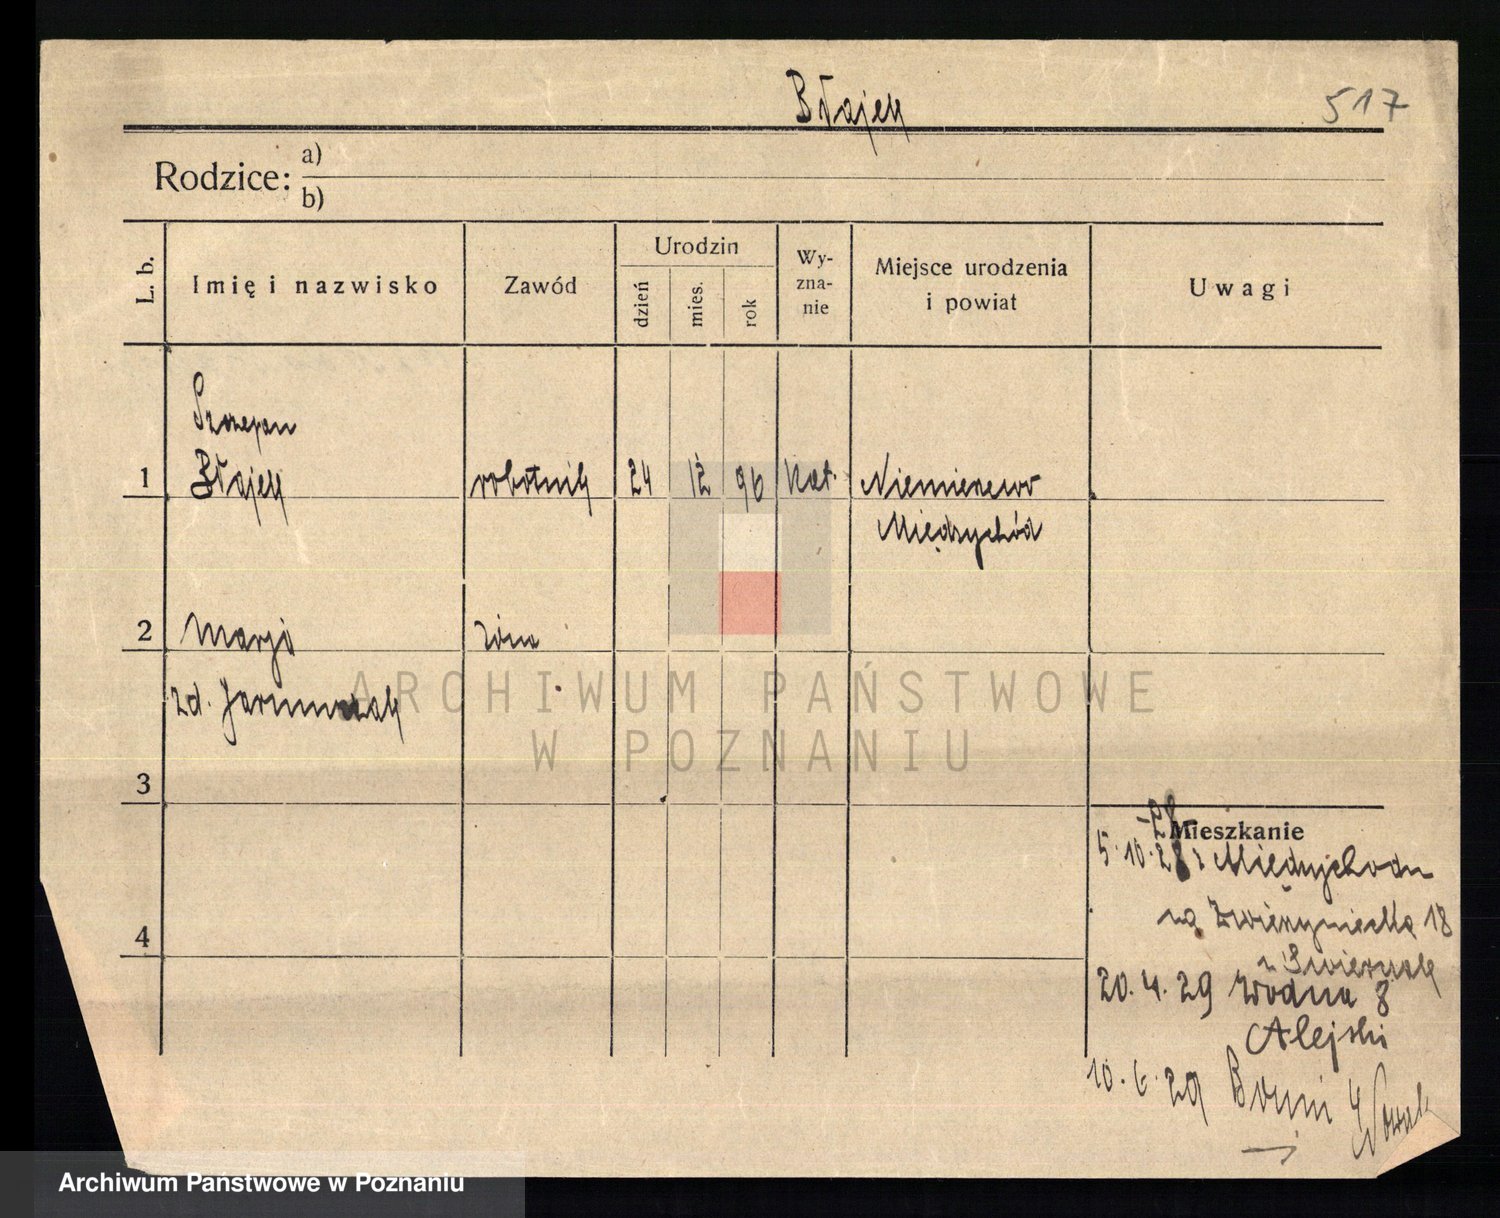 Błajek
517
Rodzice: a)
b)
L. b.
Imię i nazwisko
Zawód
Urodzin
dzień
mies.
rok
Wy-
zna-
nie
Miejsce urodzenia
i powiat
Uwagi
Szczepan
1 Błajek robotnik 24 12 96 kat.
Międzychód
2 Marja żona
zd.
3
4
Mieszkanie
5.10.28 z Międzychodu
na Zwierzyniecka 18
20.4.29 Wodna 8
Alejski
10.6.29 Nowak
ARCHIWUM PAŃSTWOWE
W POZNANIU
Archiwum Państwowe w Poznaniu